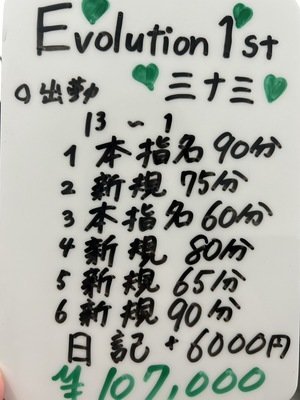 Evolution 1st
三十三
13~1
1 本指名 90分
2 新規 75分
3 本指名 60分
4 新規 80分
5 新規 65分
6 新規 90分
日記 + 6000円
¥107,000